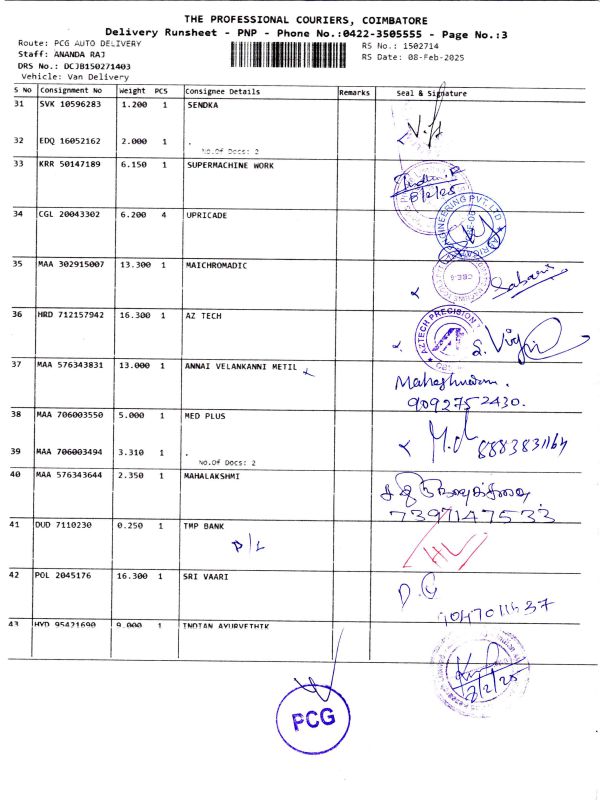 THE PROFESSIONAL COURIERS, COIMBATORE
Delivery Runsheet - PNP - Phone No.:0422-3505555 - Page No.:3
Route: PCG AUTO DELIVERY
Staff: ANANDA RAJ
DRS No.: DCJB150271403
Vehicle: Van Delivery
RS No.: 1502714
RS Date: 08-Feb-2025
S No Consignment No Weight PCS Consignee Details Remarks Seal & Signature
31 SVK 10596283 1.200 1 SENDKA
32 EDQ 16052162 2.000 1 .
No.Of Docs: 2
33 KRR 50147189 6.150 1 SUPERMACHINE WORK
8/2/25
34 CGL 20043302 6.200 4 UPRICADE
ENGINEERING PVT.LTD
35 MAA 302915007 13.300 1 MAICHROMADIC
CBE-6
Sabari
36 HRD 712157942 16.300 1 AZ TECH
AZTECH PRECISION
37 MAA 576343831 13.000 1 ANNAI VELANKANNI METIL
Maheshwaran.
9092752430.
38 MAA 706003550 5.000 1 MED PLUS
39 MAA 706003494 3.310 1 .
No.Of Docs: 2
8883831164
40 MAA 576343644 2.350 1 MAHALAKSHMI
7397147533
41 DUD 7110230 0.250 1 TMP BANK
B/L
42 POL 2045176 16.300 1 SRI VAARI
43 HYD 95421690 9.000 1 INDIAN AYURVETHIK
8/2/25
PCG